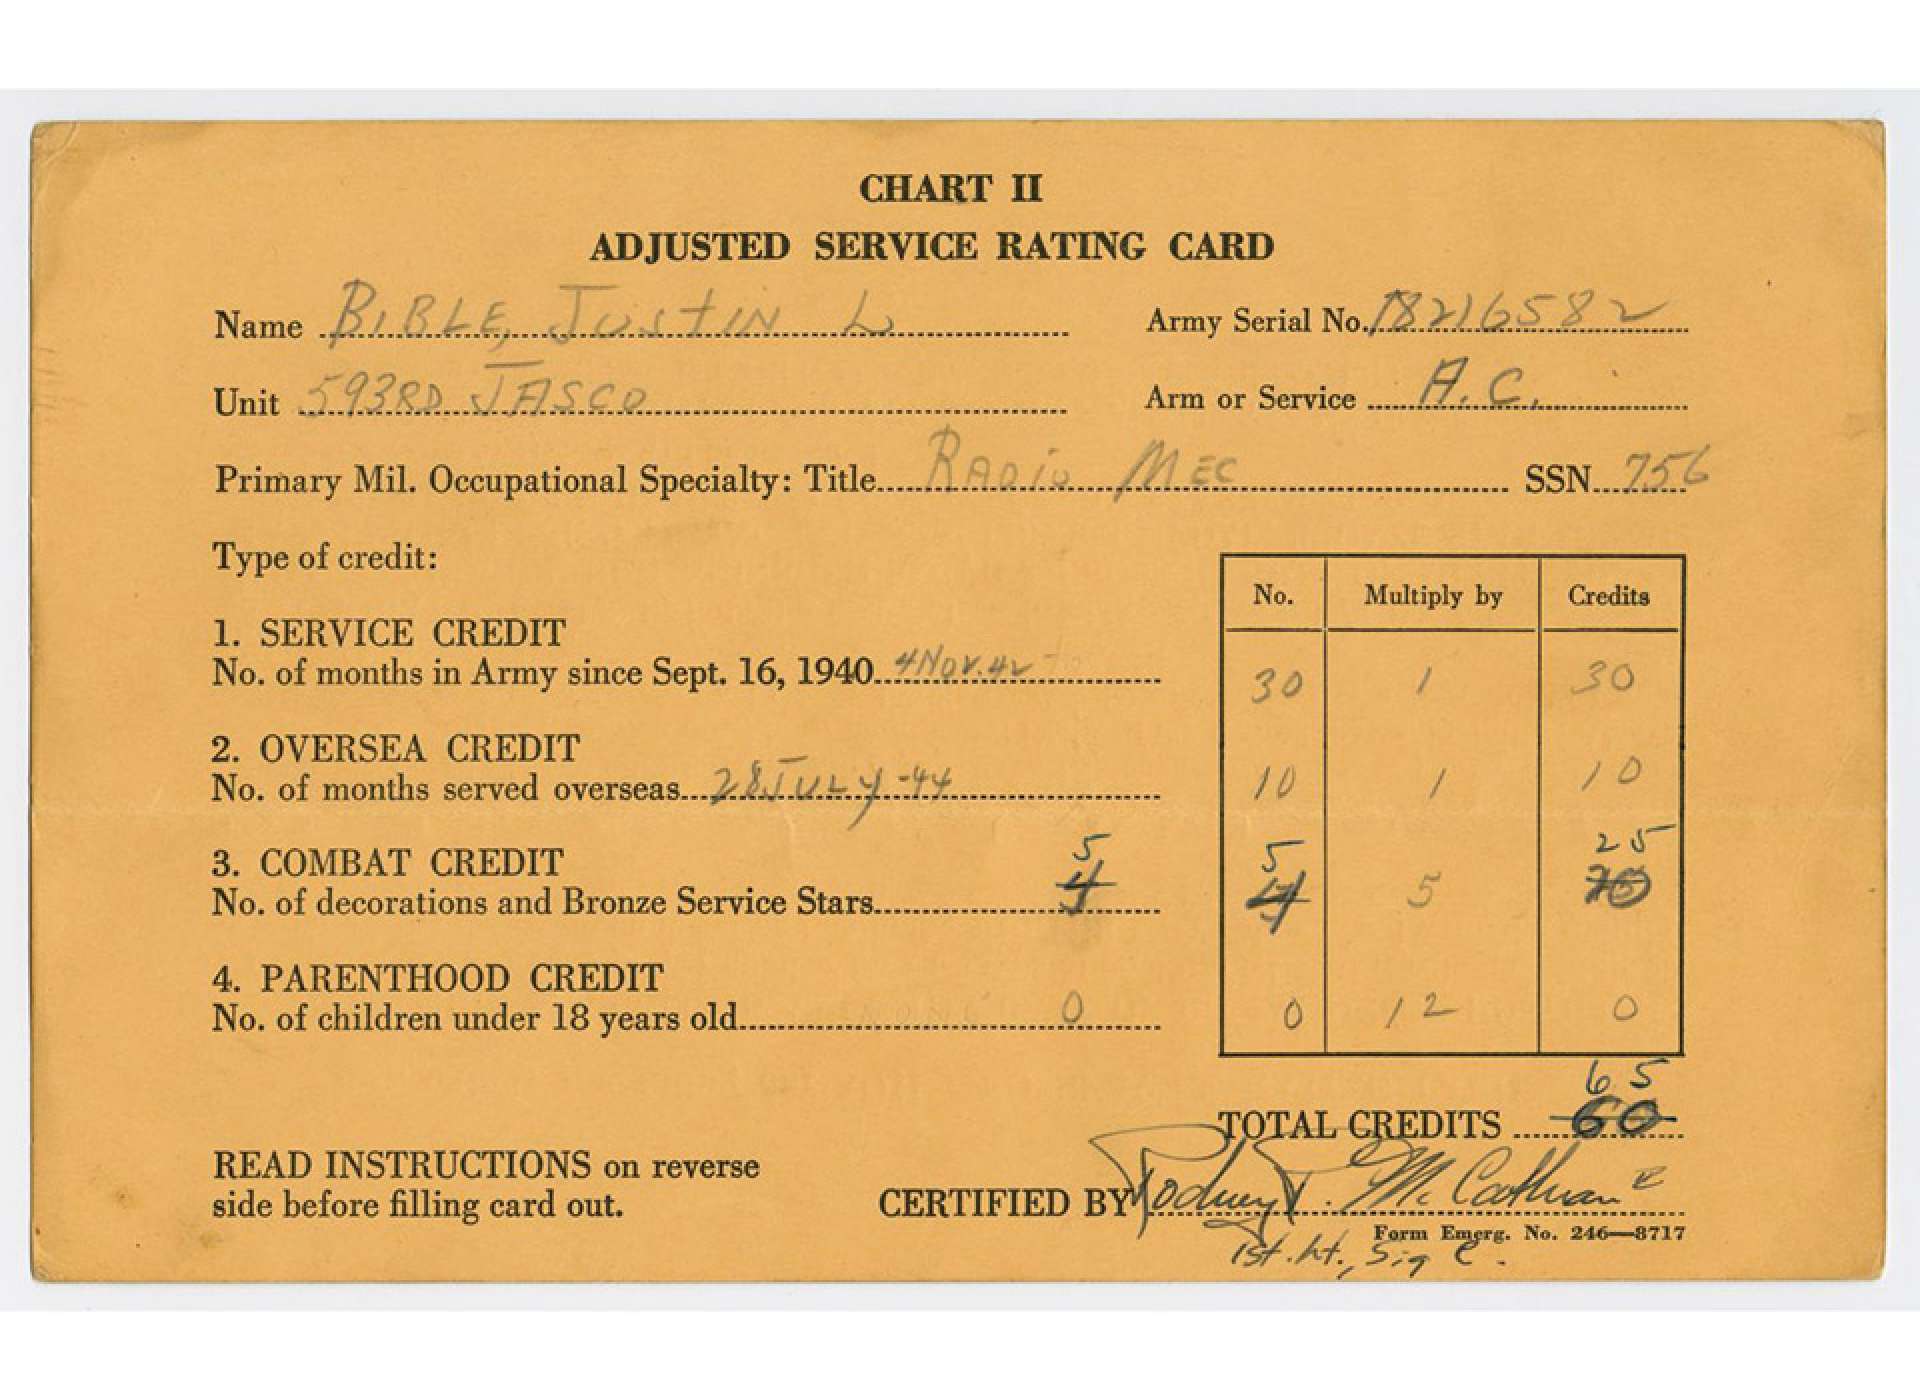 CHART II
ADJUSTED SERVICE RATING CARD
Name BIBLE, JUSTIN L Army Serial No. 18216582
Unit 593RD JASCO Arm or Service A.C.
Primary Mil. Occupational Specialty: Title RADIO MEC SSN 756
Type of credit:
No. Multiply by Credits
1. SERVICE CREDIT
No. of months in Army since Sept. 16, 1940 4 NOV. 42 30 1 30
2. OVERSEA CREDIT
No. of months served overseas 28 JULY -44 10 1 10
5 5 25
3. COMBAT CREDIT
No. of decorations and Bronze Service Stars 4 4 5
4. PARENTHOOD CREDIT
No. of children under 18 years old 0 0 12 0
65
TOTAL CREDITS 60
READ INSTRUCTIONS on reverse
side before filling card out.
CERTIFIED BY Rodney T. McCathran
Form Emerg. No. 246—8717
1st. Lt., Sig C.